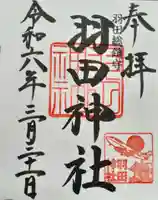 奉拝
羽田総鎮守
羽田神社
令和六年三月二十一日